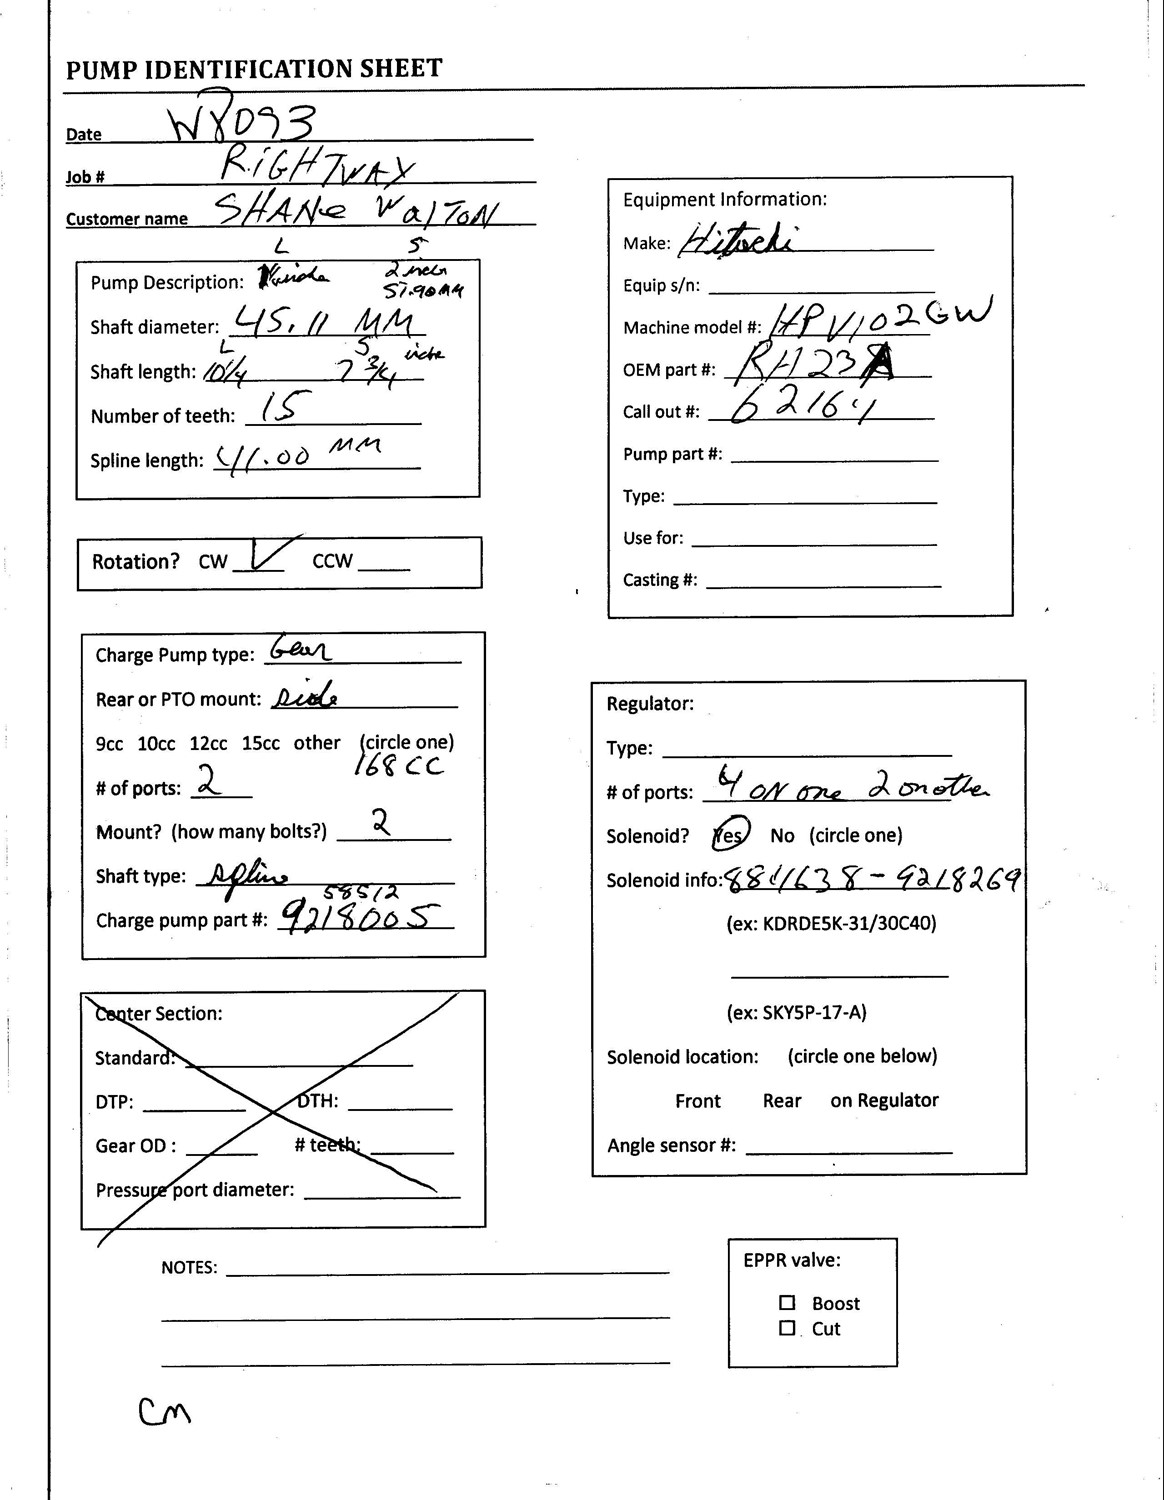 PUMP IDENTIFICATION SHEET
Date W8093
Job # RIGHTWAY
Customer name SHANE WalTON
L S
Pump Description: 2 inch
57.90 MM
Shaft diameter: 45.11 MM
L S
Shaft length: 10 1/4 7 3/4 inche
Number of teeth: 15
Spline length: 41.00 MM
Rotation? CW ✓ CCW
Charge Pump type: Gear
Rear or PTO mount: side
9cc 10cc 12cc 15cc other (circle one)
168 CC
# of ports: 2
Mount? (how many bolts?) 2
Shaft type: spline
58512
Charge pump part #: 9218005
Center Section:
Standard:
DTP: DTH:
Gear OD : # teeth:
Pressure port diameter:
NOTES:
CM
Equipment Information:
Make: Hitachi
Equip s/n:
Machine model #: HPV102GW
OEM part #: RH23A
Call out #: 62164
Pump part #:
Type:
Use for:
Casting #:
Regulator:
Type:
# of ports: 4 ON one 2 on other
Solenoid? Yes No (circle one)
Solenoid info: 8841638-9218269
(ex: KDRDE5K-31/30C40)
(ex: SKY5P-17-A)
Solenoid location: (circle one below)
Front Rear on Regulator
Angle sensor #:
EPPR valve:
☐ Boost
☐ Cut